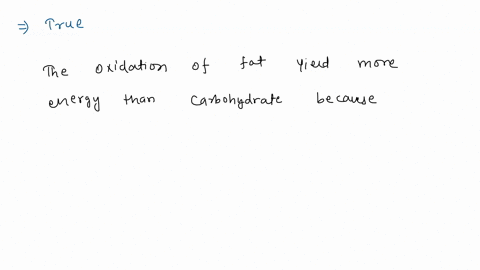 ⇒ True
The oxidation of fat yield more
energy than carbohydrate because